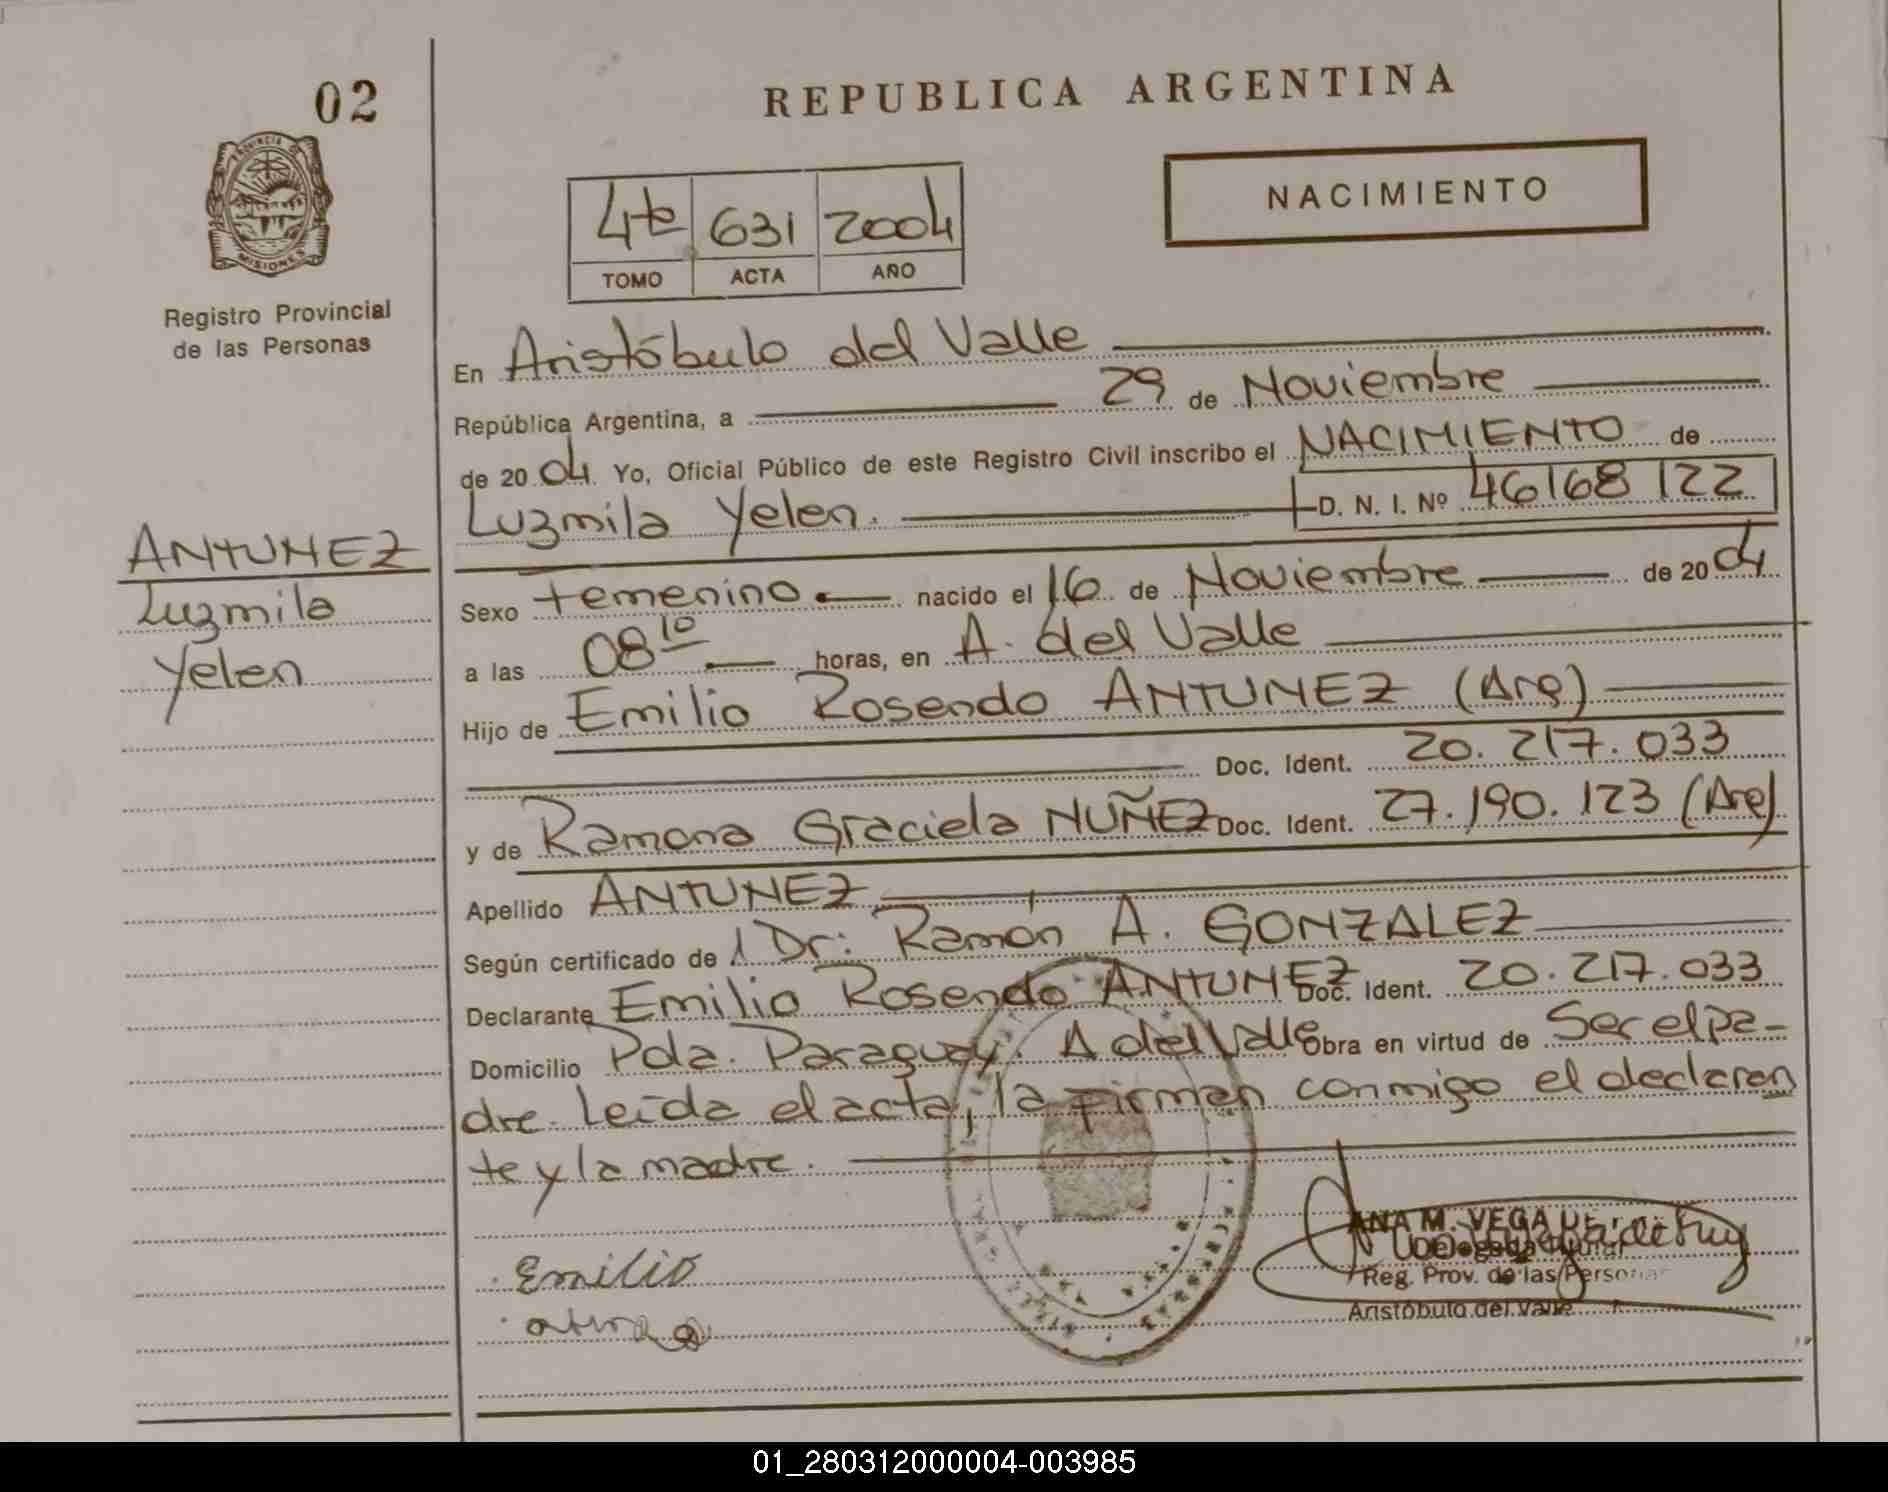 02
REPUBLICA ARGENTINA
PROVINCIA DE
MISIONES
NACIMIENTO
4to 631 2004
TOMO ACTA AÑO
Registro Provincial
de las Personas
En Aristóbulo del Valle
República Argentina, a 29 de Noviembre
de 2004 Yo, Oficial Público de este Registro Civil inscribo el NACIMIENTO de
Luzmila Yelen. D. N. I. Nº 46168122
ANTUNEZ
Luzmila
Yelen
Sexo Femenino nacido el 16 de Noviembre de 2004
a las 08 10 horas, en A. del Valle
Hijo de Emilio Rosendo ANTUNEZ (Arg)
Doc. Ident. 20.217.033
y de Ramona Graciela NUÑEZ Doc. Ident. 27.190.123 (Arg)
Apellido ANTUNEZ
Según certificado de Dr: Ramón A. GONZALEZ
Declarante Emilio Rosendo ANTUNEZ Doc. Ident. 20.217.033
Domicilio Pda. Paraguay. A del Valle Obra en virtud de Ser el pa-
dre. Leída el acta, la firman conmigo el declaran
te y la madre.
Emilio
ANA M. VEGA DE
Delegada Titular
Reg. Prov. de las Personas
Aristóbulo del Valle
01_280312000004-003985